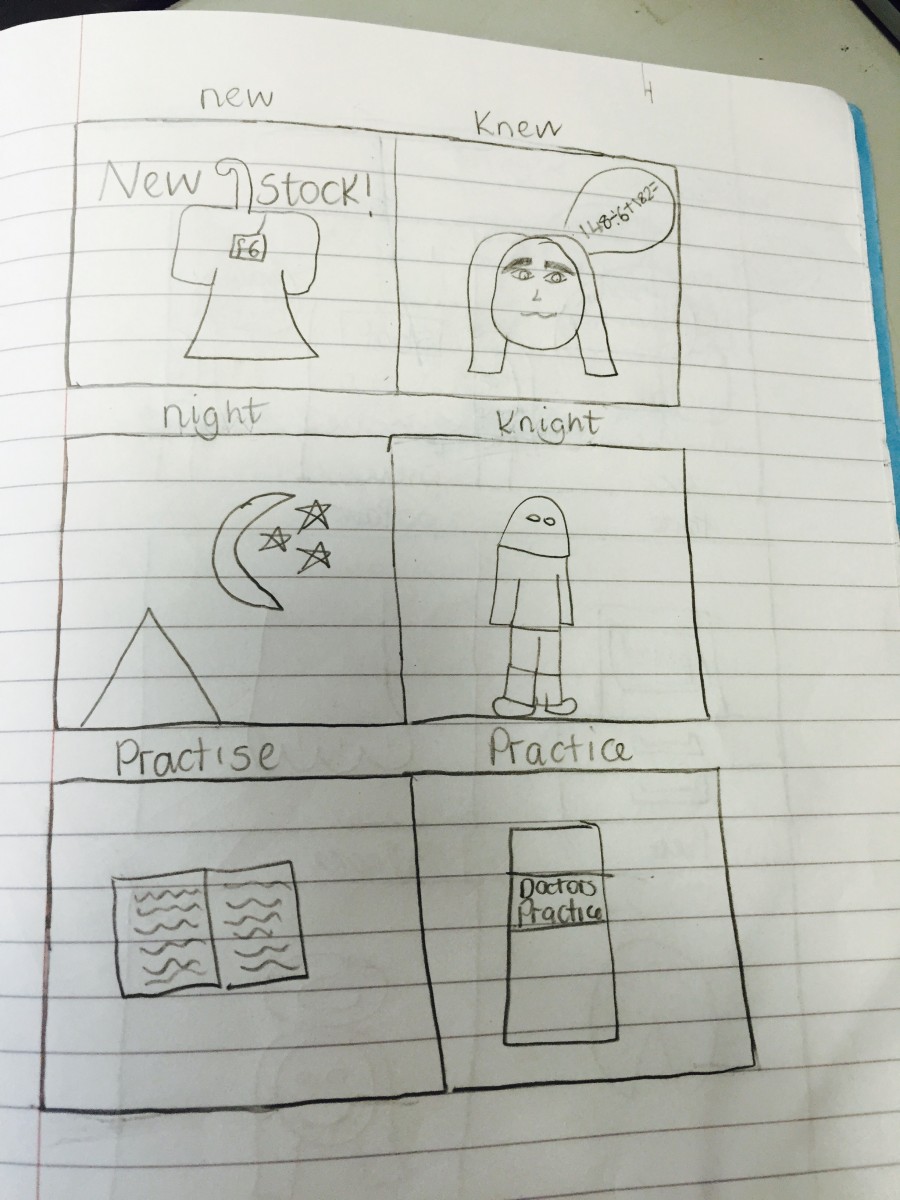 new
Knew
New stock!
£6
148÷6+182=
night
Knight
Practise
Practice
Doctors
Practice